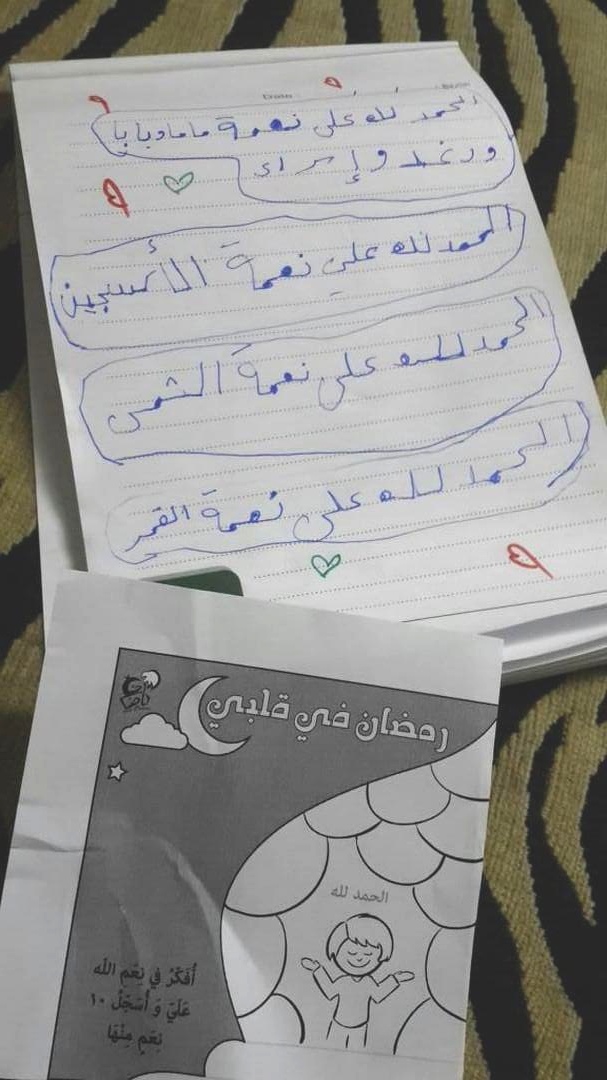 الحمد لله على نعمة ماما وبابا
ورغد وإسراء
الحمد لله علي نعمة الأكسجين
الحمد لله على نعمة الشمس
الحمد لله على نعمة القمر
رمضان في قلبي
الحمد لله
أُفَكِّرُ في نِعَمِ الله
عَلَيَّ وَ أُسَجِّلُ ١٠
نِعَمٍ مِنْهَا